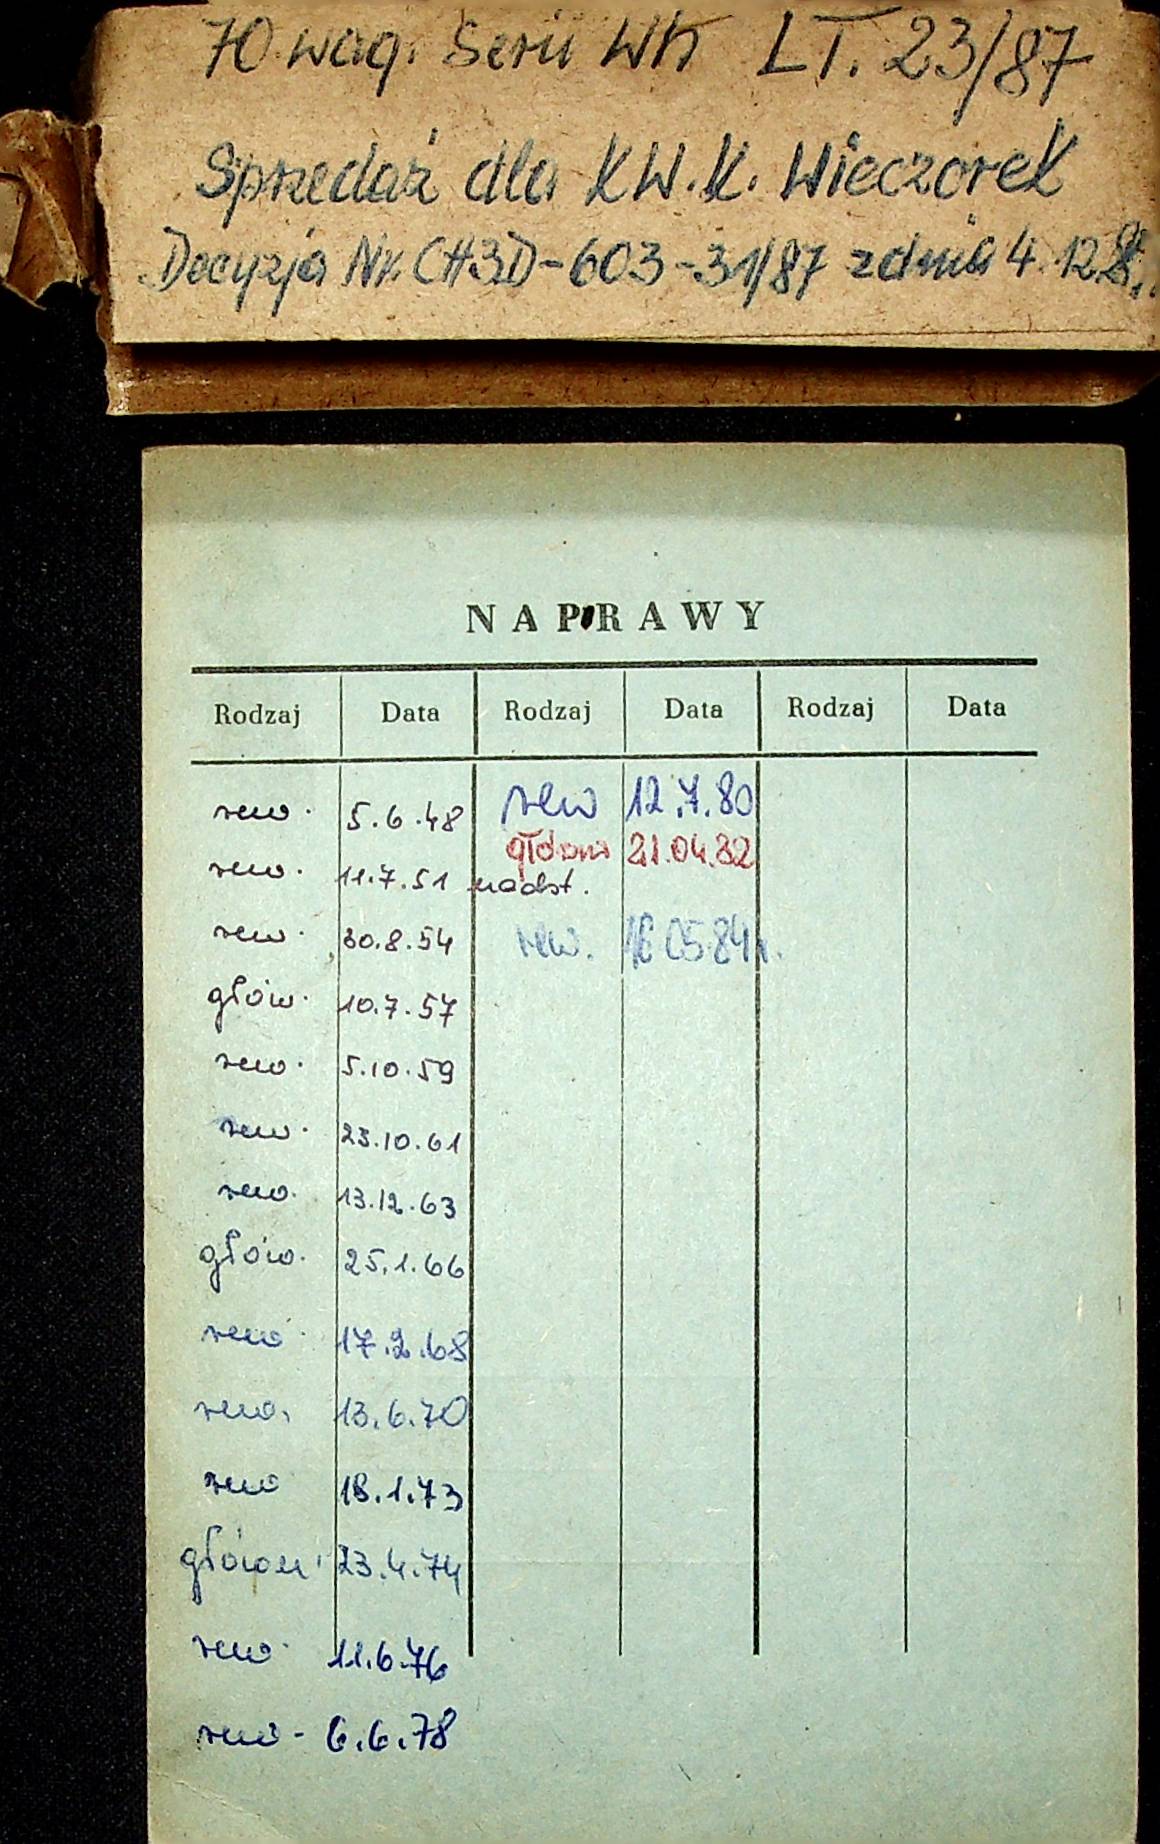 70 wag. Serii Wh LT. 23/87
Sprzedaż dla KW.K. Wieczorek
Decyzja Nr. CH3D-603-31/87 z dnia 4.12.8
NAPRAWY
Rodzaj Data Rodzaj Data Rodzaj Data
rew. 5.6.48 rew 12.7.80
główna 21.04.82
rew. 11.7.51 nadst.
rew. 30.8.54 rew. 16 05 84 r.
głów. 10.7.57
rew. 5.10.59
rew. 23.10.61
rew. 13.12.63
głów. 25.1.66
rew. 17.2.68
rew. 13.6.70
rew 18.1.73
główn. 23.4.74
rew. 11.6.76
rew - 6.6.78